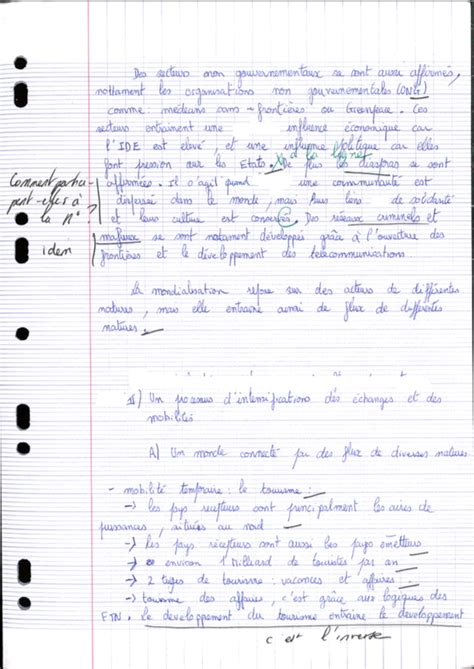 Des secteurs non gouvernementaux se sont aussi affirmés,
nottament les organisations non gouvernementales (ONG)
comme médecins sans-frontières ou Greenpeace. Ces
secteurs entrainent une influence économique car
l'IDE est élevé, et une influence politique car elles
font pression sur les Etats. De plus les diasporas se sont
affirmées. Il s'agit quand une communauté est
dispersée dans le monde, mais leurs liens de solidarité
et leur culture est conservés. Des réseaux criminels et
mafieux se sont notament développés grâce à l'ouverture des
frontières et le développement des télécommunications.
Comment partici-
pent-elles à
la m°
idem
La mondialisation repose sur des acteurs de différentes
natures, mais elle entraine ainsi de flux de différentes
natures.
II) Un processus d'intensifications des échanges et des
mobilités
A) Un monde connecté par des flux de diverses natures
- mobilité temporaire : le tourisme :
-> les pays recepteurs sont principalment les aires de
puissances, situées au nord
-> les pays récepteurs sont aussi les pays émetteurs
-> environ 1 milliard de touristes par an
-> 2 types de tourisme : vacances et affaires
-> tourisme des affaires, c'est grâce aux logiques des
FTN. Le developpement du tourisme entraine le developpement
c'est l'inverse